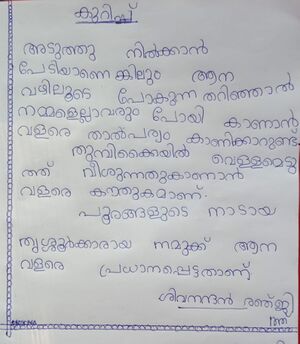 കുറിപ്പ്
അടുത്തു നിൽക്കാൻ
പേടിയാണെങ്കിലും ആന
വഴിലൂടെ പോകുന്നതറിഞ്ഞാൽ
നമ്മളെല്ലാവരും പോയി കാണാൻ
വളരെ താൽപര്യം കാണിക്കാറുണ്ട്
തുമ്പിക്കൈയിൽ വെള്ളമെടു
ത്ത് വീശുന്നതുകാണാൻ
വളരെ കൗതുകമാണ്.
പൂരങ്ങളുടെ നാടായ
തൃശ്ശൂർക്കാരായ നമുക്ക് ആന
വളരെ പ്രധാനപ്പെട്ടതാണ്
ശിവനന്ദൻ രഞ്ജിത്ത്